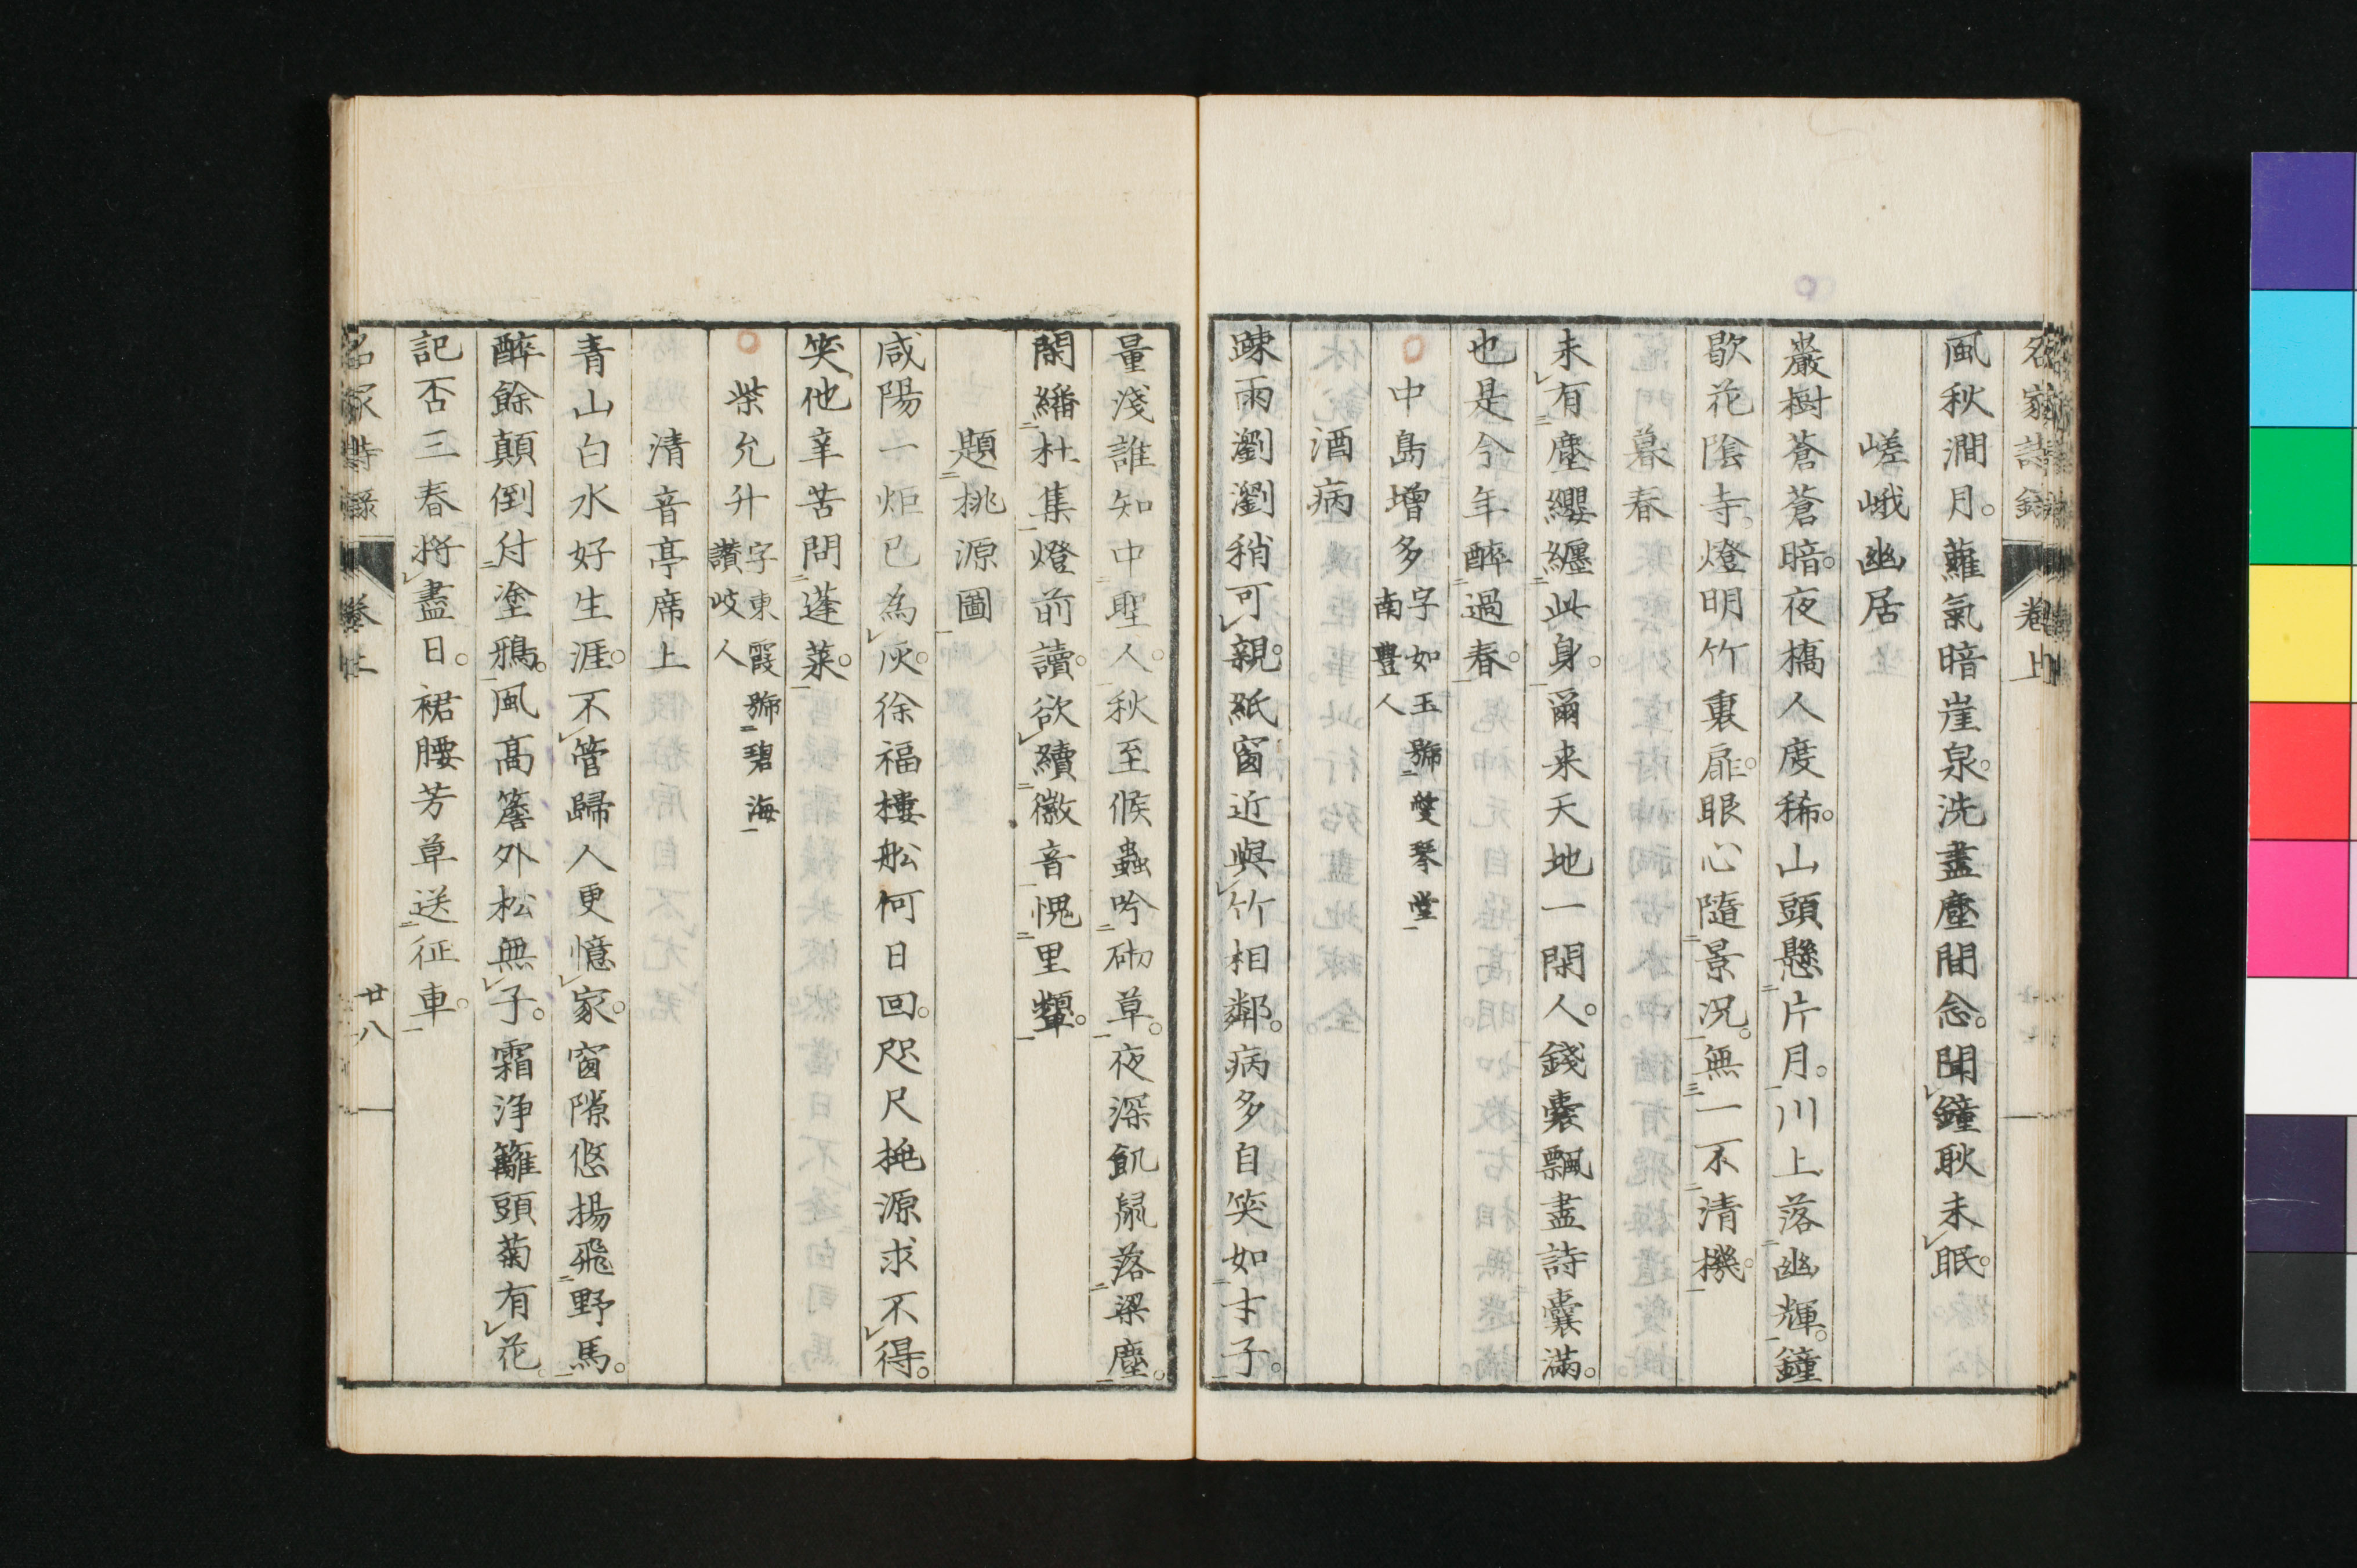 名家詩録 卷上
風秋澗月。蘿氣暗崖泉。洗盡塵間念。聞鐘耿未眠。
嵯峨幽居
巖樹蒼蒼暗。夜橋人度稀。山頭懸片月。川上落幽輝。鐘
歇花陰寺。燈明竹裏扉。眼心隨景況。無一不清機。
暮春
未有塵纓纏此身。爾来天地一閑人。錢嚢飄盡詩嚢滿。
也是今年醉過春。
○中島增多字如玉號雙琴堂南豊人
酒病
疎雨瀏瀏稍可親。紙窗近與竹相鄰。病多自笑如才子。
量淺誰知中聖人。秋至候蟲吟砌草。夜深飢鼠落梁塵。
閑繙杜集燈前讀。欲續徽音愧里顰。
題桃源圖
咸陽一炬已為灰。徐福樓舩何日回。咫尺桃源求不得。
笑他辛苦問蓬萊。
○柴允升字東霞號碧海讃岐人
清音亭席上
青山白水好生涯。不管歸人更憶家。窗隙悠揚飛野馬。
醉餘顛倒付塗鴉。風高簷外松無子。霜浄籬頭菊有花。
記否三春将盡日。裙腰芳草送征車。
名家詩録 卷上 廿八